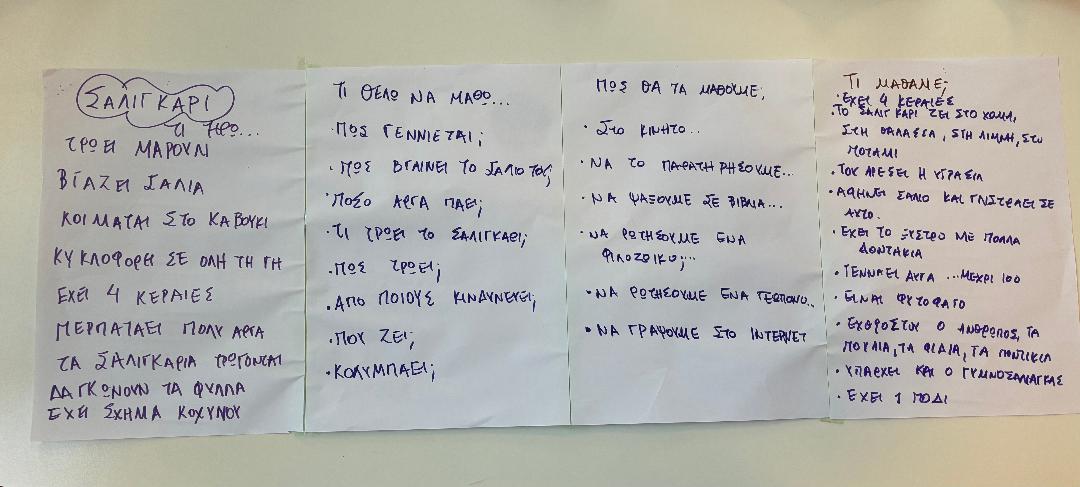 ΣΑΛΙΓΚΑΡΙ
ΤΙ ΞΕΡΩ...
ΤΡΩΕΙ ΜΑΡΟΥΛΙ
ΒΓΑΖΕΙ ΣΑΛΙΑ
ΚΟΙΜΑΤΑΙ ΣΤΟ ΚΑΒΟΥΚΙ
ΚΥΚΛΟΦΟΡΕΙ ΣΕ ΟΛΗ ΤΗ ΓΗ
ΕΧΕΙ 4 ΚΕΡΑΙΕΣ
ΠΕΡΠΑΤΑΕΙ ΠΟΛΥ ΑΡΓΑ
ΤΑ ΣΑΛΙΓΚΑΡΙΑ ΤΡΩΓΟΝΤΑΙ
ΔΑΓΚΩΝΟΥΝ ΤΑ ΦΥΛΛΑ
ΕΧΕΙ ΣΧΗΜΑ ΚΟΧΥΛΙΟΥ
ΤΙ ΘΕΛΩ ΝΑ ΜΑΘΩ...
·ΠΩΣ ΓΕΝΝΙΕΤΑΙ;
·ΠΩΣ ΒΓΑΙΝΕΙ ΤΟ ΣΑΛΙΟ ΤΟΥ;
·ΠΟΣΟ ΑΡΓΑ ΠΑΕΙ;
·ΤΙ ΤΡΩΕΙ ΤΟ ΣΑΛΙΓΚΑΡΙ;
·ΠΩΣ ΤΡΩΕΙ;
·ΑΠΟ ΠΟΙΟΥΣ ΚΙΝΔΥΝΕΥΕΙ;
·ΠΟΥ ΖΕΙ;
·ΚΟΛΥΜΠΑΕΙ;
ΠΩΣ ΘΑ ΤΑ ΜΑΘΟΥΜΕ;
·ΣΤΟ ΚΙΝΗΤΟ...
·ΝΑ ΤΟ ΠΑΡΑΤΗΡΗΣΟΥΜΕ...
·ΝΑ ΨΑΞΟΥΜΕ ΣΕ ΒΙΒΛΙΑ...
·ΝΑ ΡΩΤΗΣΟΥΜΕ ΕΝΑ
ΦΙΛΟΖΩΙΚΟ;...
·ΝΑ ΡΩΤΗΣΟΥΜΕ ΕΝΑ ΓΕΩΠΟΝΟ...
·ΝΑ ΓΡΑΨΟΥΜΕ ΣΤΟ ΙΝΤΕΡΝΕΤ
ΤΙ ΜΑΘΑΜΕ;
·ΕΧΕΙ 4 ΚΕΡΑΙΕΣ
·ΤΟ ΣΑΛΙΓΚΑΡΙ ΖΕΙ ΣΤΟ ΧΩΜΑ,
ΣΤΗ ΘΑΛΑΣΣΑ, ΣΤΗ ΛΙΜΝΗ, ΣΤΟ
ΠΟΤΑΜΙ
·ΤΟΥ ΑΡΕΣΕΙ Η ΥΓΡΑΣΙΑ
·ΑΦΗΝΕΙ ΣΑΛΙΟ ΚΑΙ ΓΛΙΣΤΡΑΕΙ ΣΕ
ΑΥΤΟ.
·ΕΧΕΙ ΤΟ ΞΥΣΤΡΟ ΜΕ ΠΟΛΛΑ
ΔΟΝΤΑΚΙΑ
·ΓΕΝΝΑΕΙ ΑΥΓΑ ...ΜΕΧΡΙ 100
·ΕΙΝΑΙ ΦΥΤΟΦΑΓΟ
·ΕΧΘΡΟΣ ΤΟΥ Ο ΑΝΘΡΩΠΟΣ, ΤΑ
ΠΟΥΛΙΑ, ΤΑ ΦΙΔΙΑ, ΤΑ ΠΟΝΤΙΚΙΑ
·ΥΠΑΡΧΕΙ ΚΑΙ Ο ΓΥΜΝΟΣΑΛΙΑΓΚΑΣ
·ΕΧΕΙ 1 ΠΟΔΙ